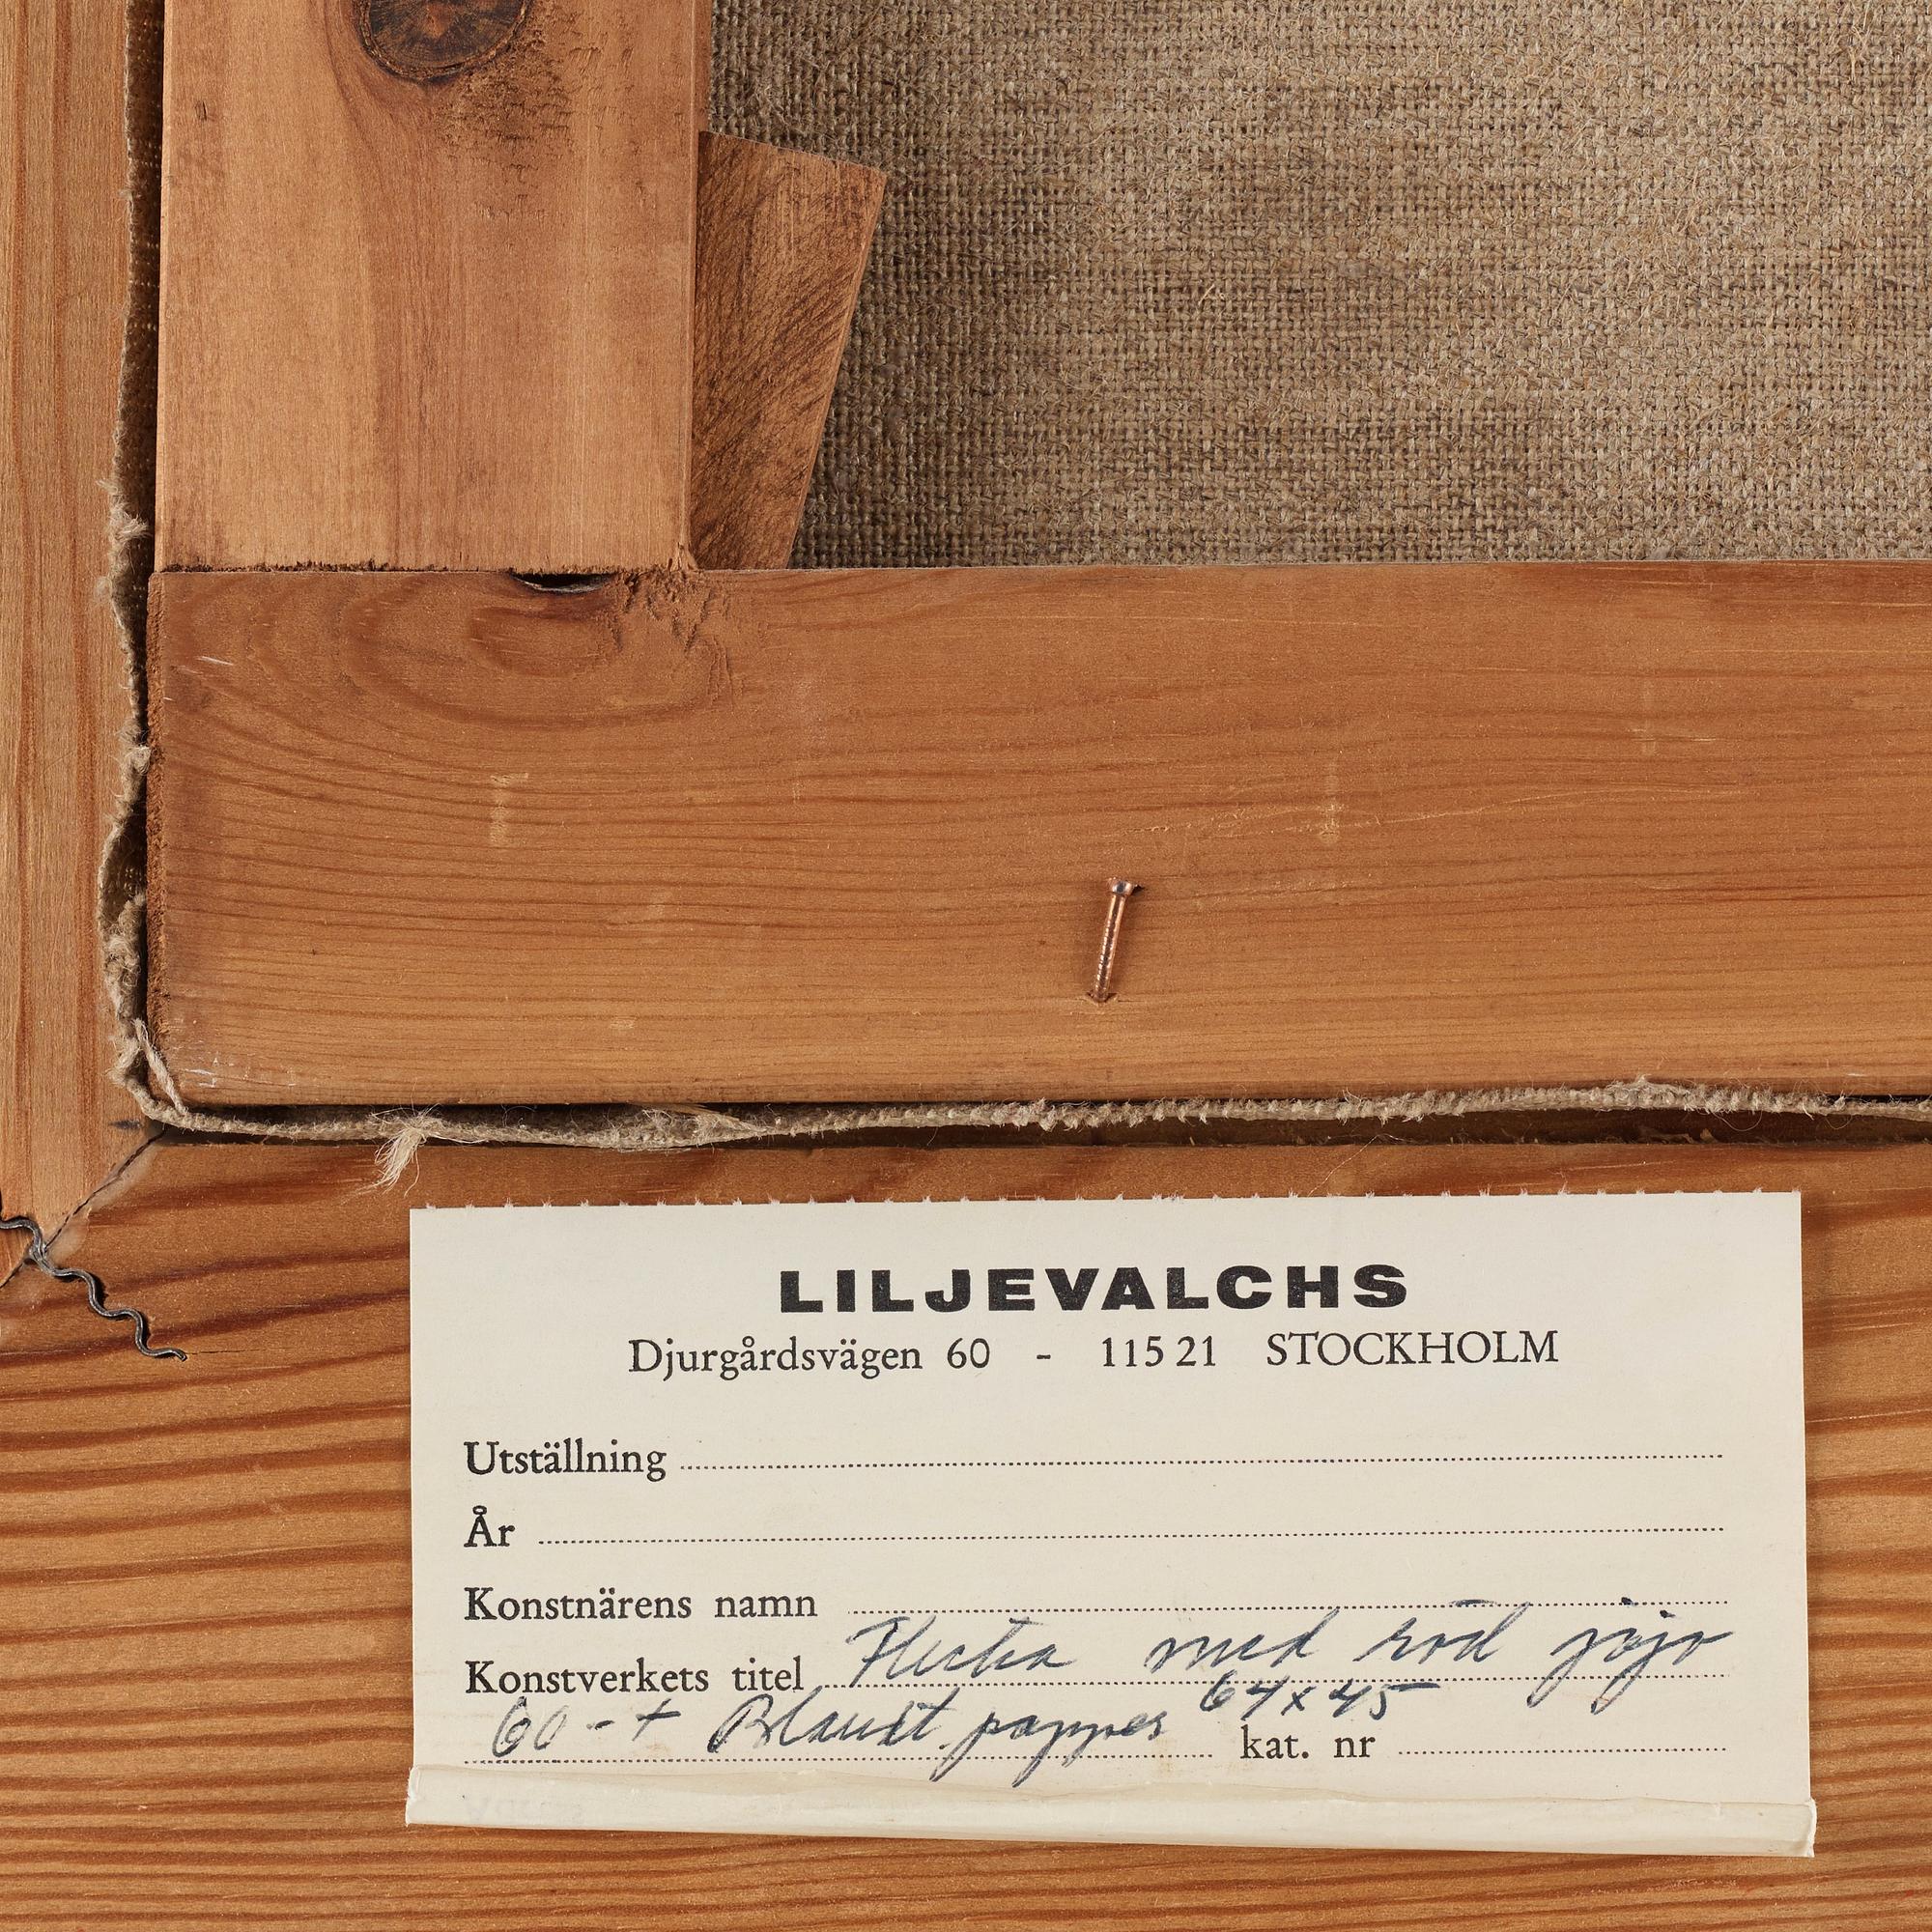 LILJEVALCHS
Djurgårdsvägen 60 - 115 21 STOCKHOLM
Utställning
År
Konstnärens namn
Konstverkets titel Flicka med röd jojo
64x45
60 - + Blandt papper
kat. nr